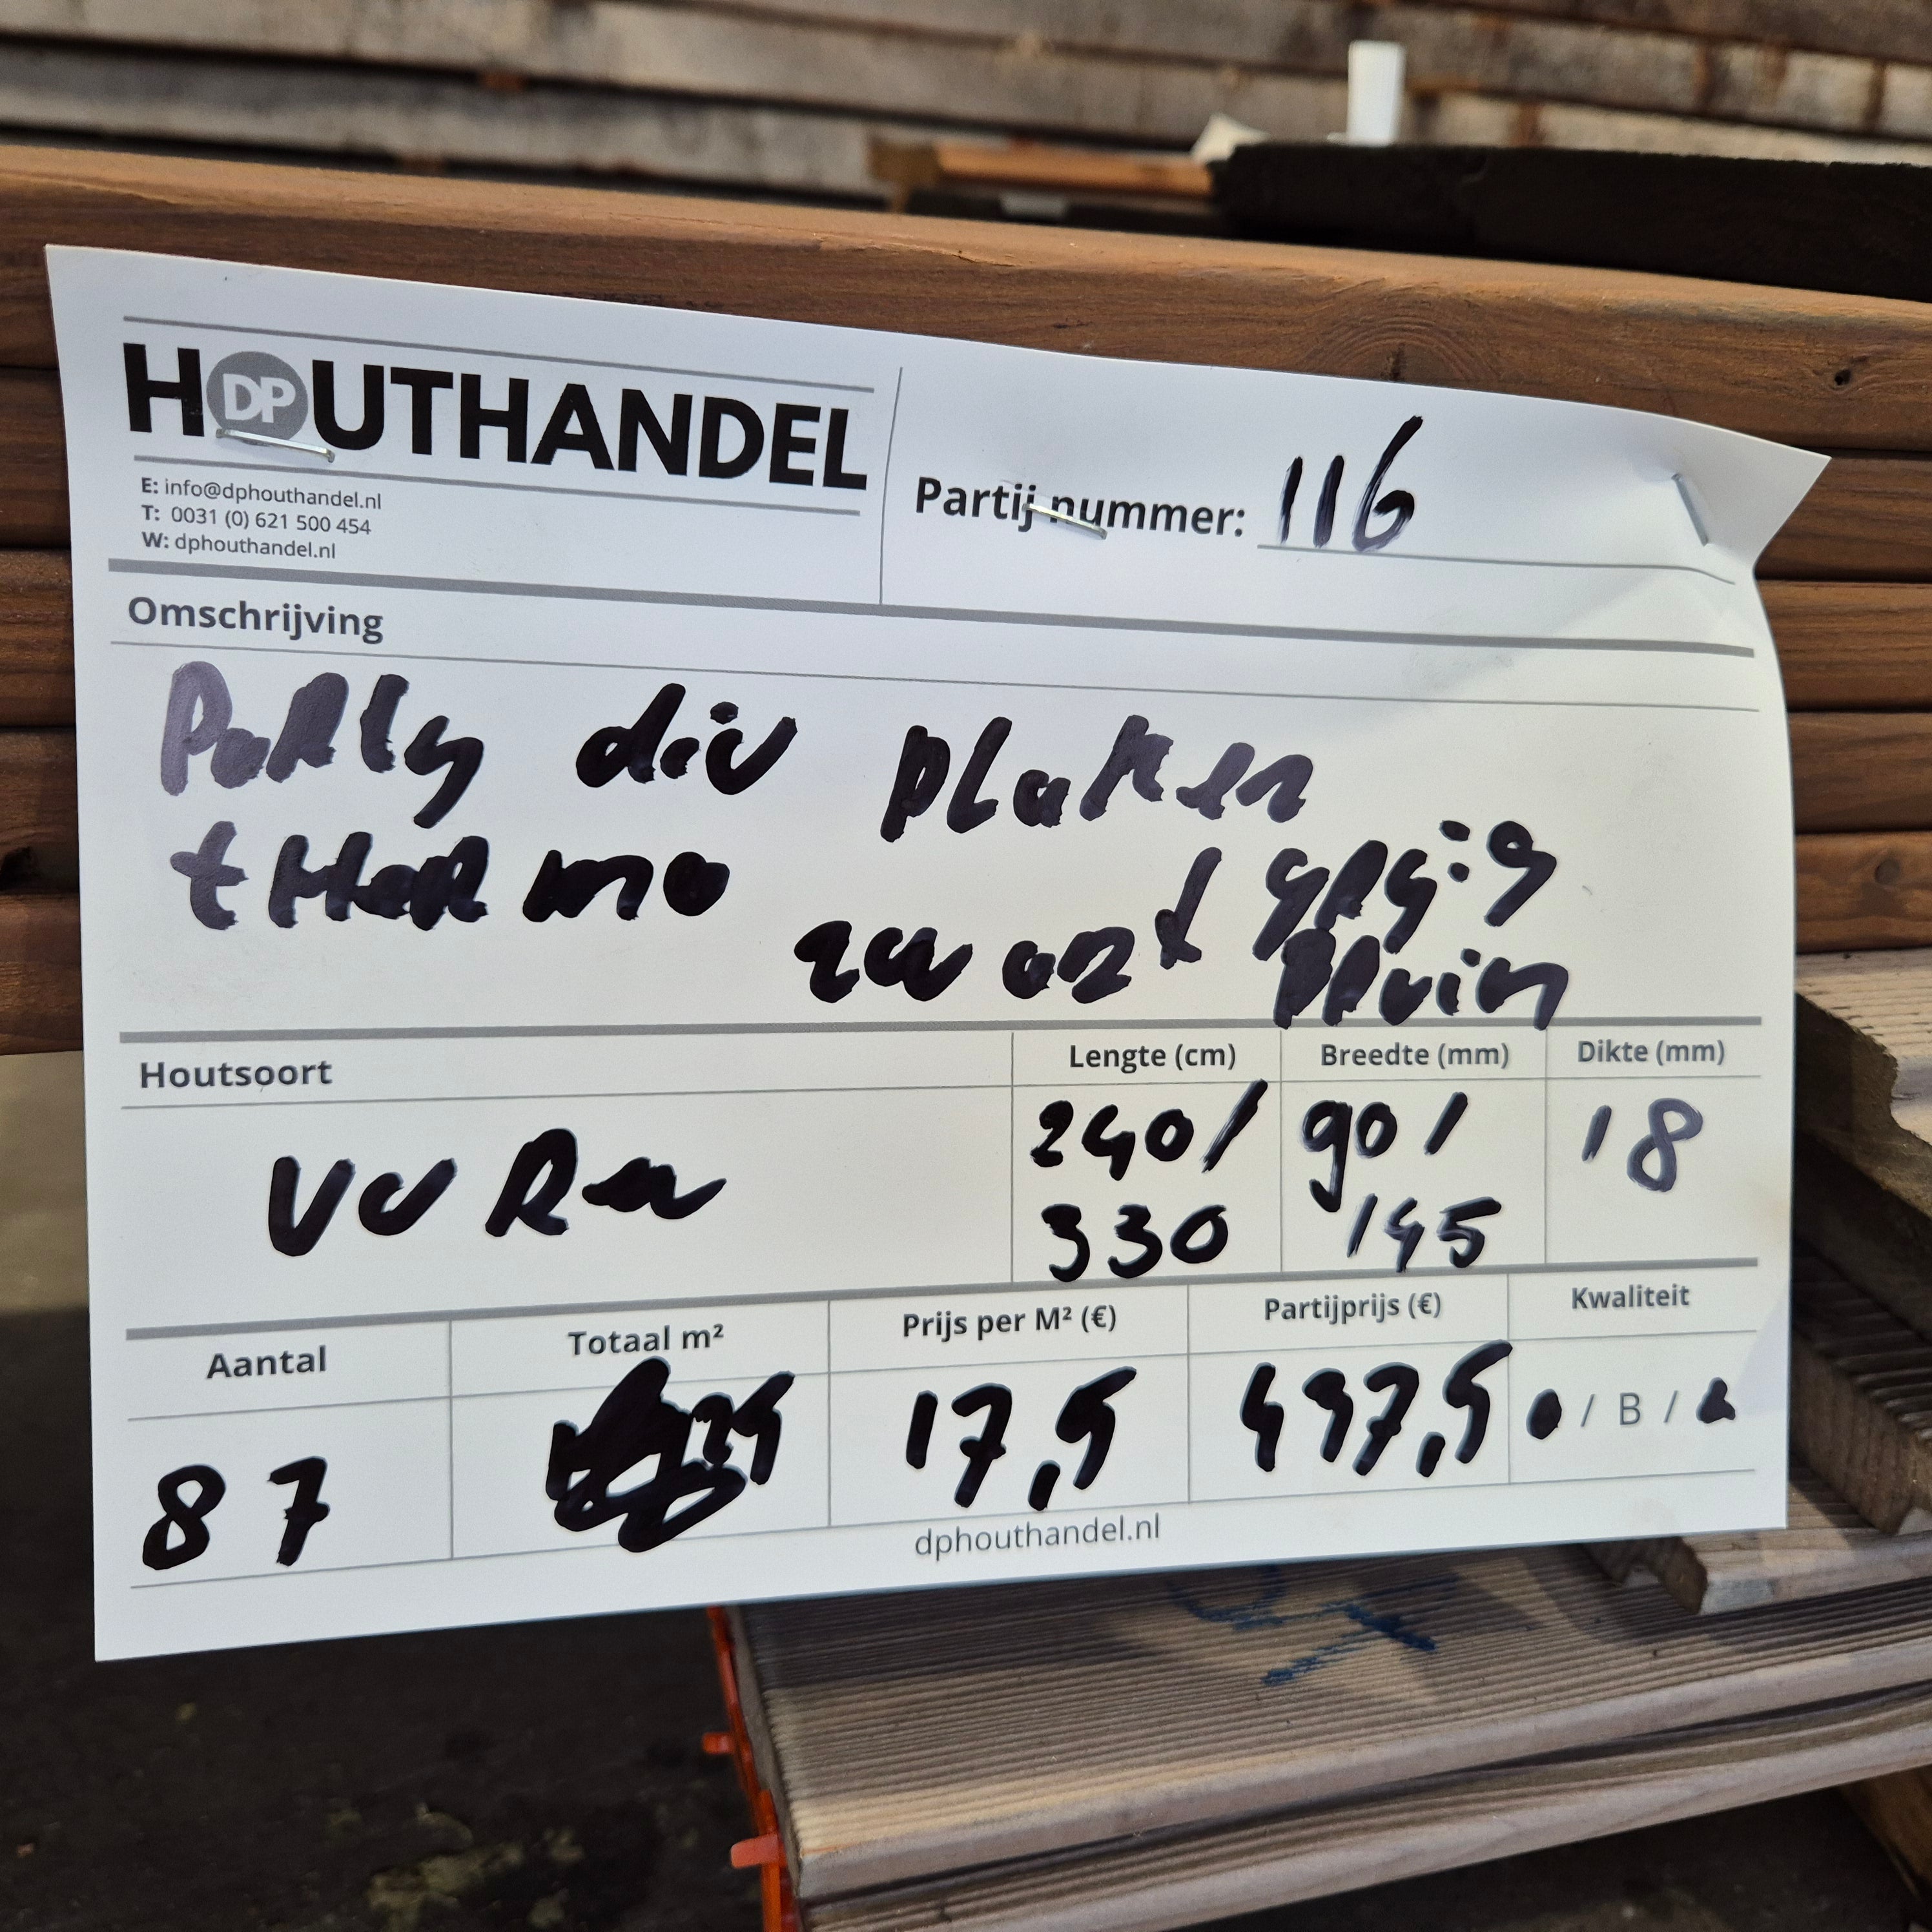 HOUTHANDEL
DP
E: info@dphouthandel.nl
T: 0031 (0) 621 500 454
W: dphouthandel.nl
Partij nummer: 116
Omschrijving
Party div planken
thermo zwart grijs
bruin
Houtsoort
Lengte (cm)
Breedte (mm)
Dikte (mm)
Vuren
240/
330
90/
145
18
Aantal
Totaal m²
Prijs per M² (€)
Partijprijs (€)
Kwaliteit
87
17,5
437,5
/ B /
dphouthandel.nl